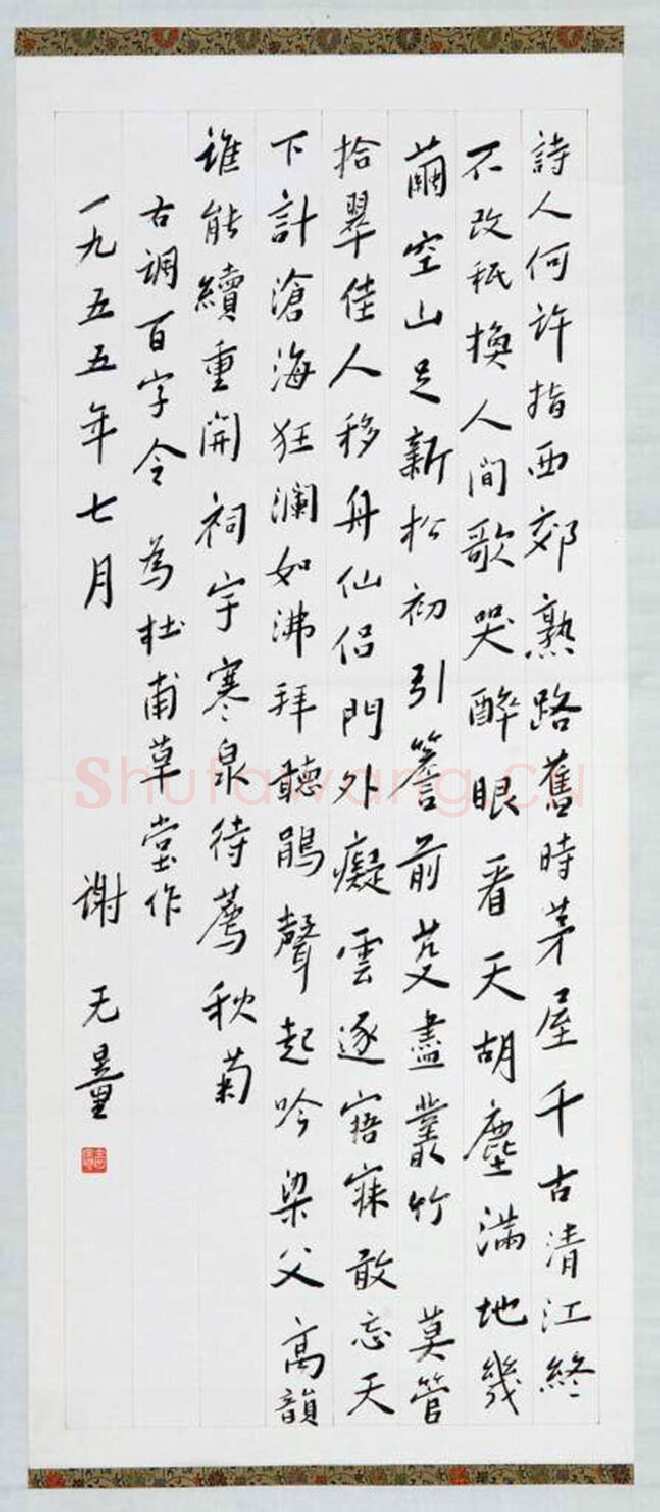 詩人何許指西郊熟路舊時茅屋千古清江終
不改秖換人間歌哭醉眼看天胡塵滿地幾
繭空山足新松初引簷前芟盡叢竹　莫管
拾翠佳人移舟仙侣門外癡雲逐寤寐敢忘天
下計滄海狂瀾如沸拜聽鵑聲起吟梁父高韻
誰能續重開祠宇寒泉待薦秋菊
古调百字令　為杜甫草堂作
一九五五年七月　謝无量
Shufawang.CN